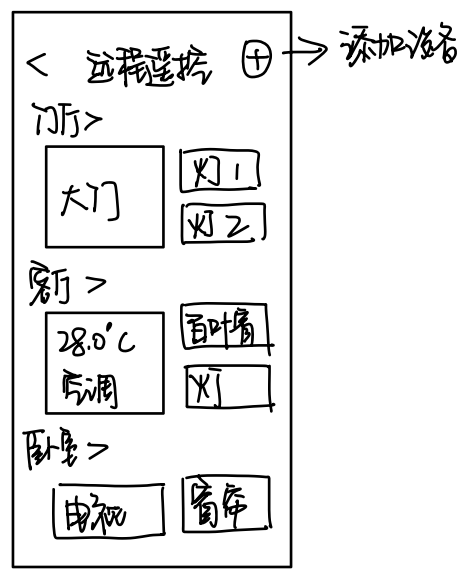 < 远程遥控 + → 添加设备
门厅>
大门
灯1
灯2
客厅>
28.0°C
空调
百叶窗
灯
卧室>
电视
窗帘